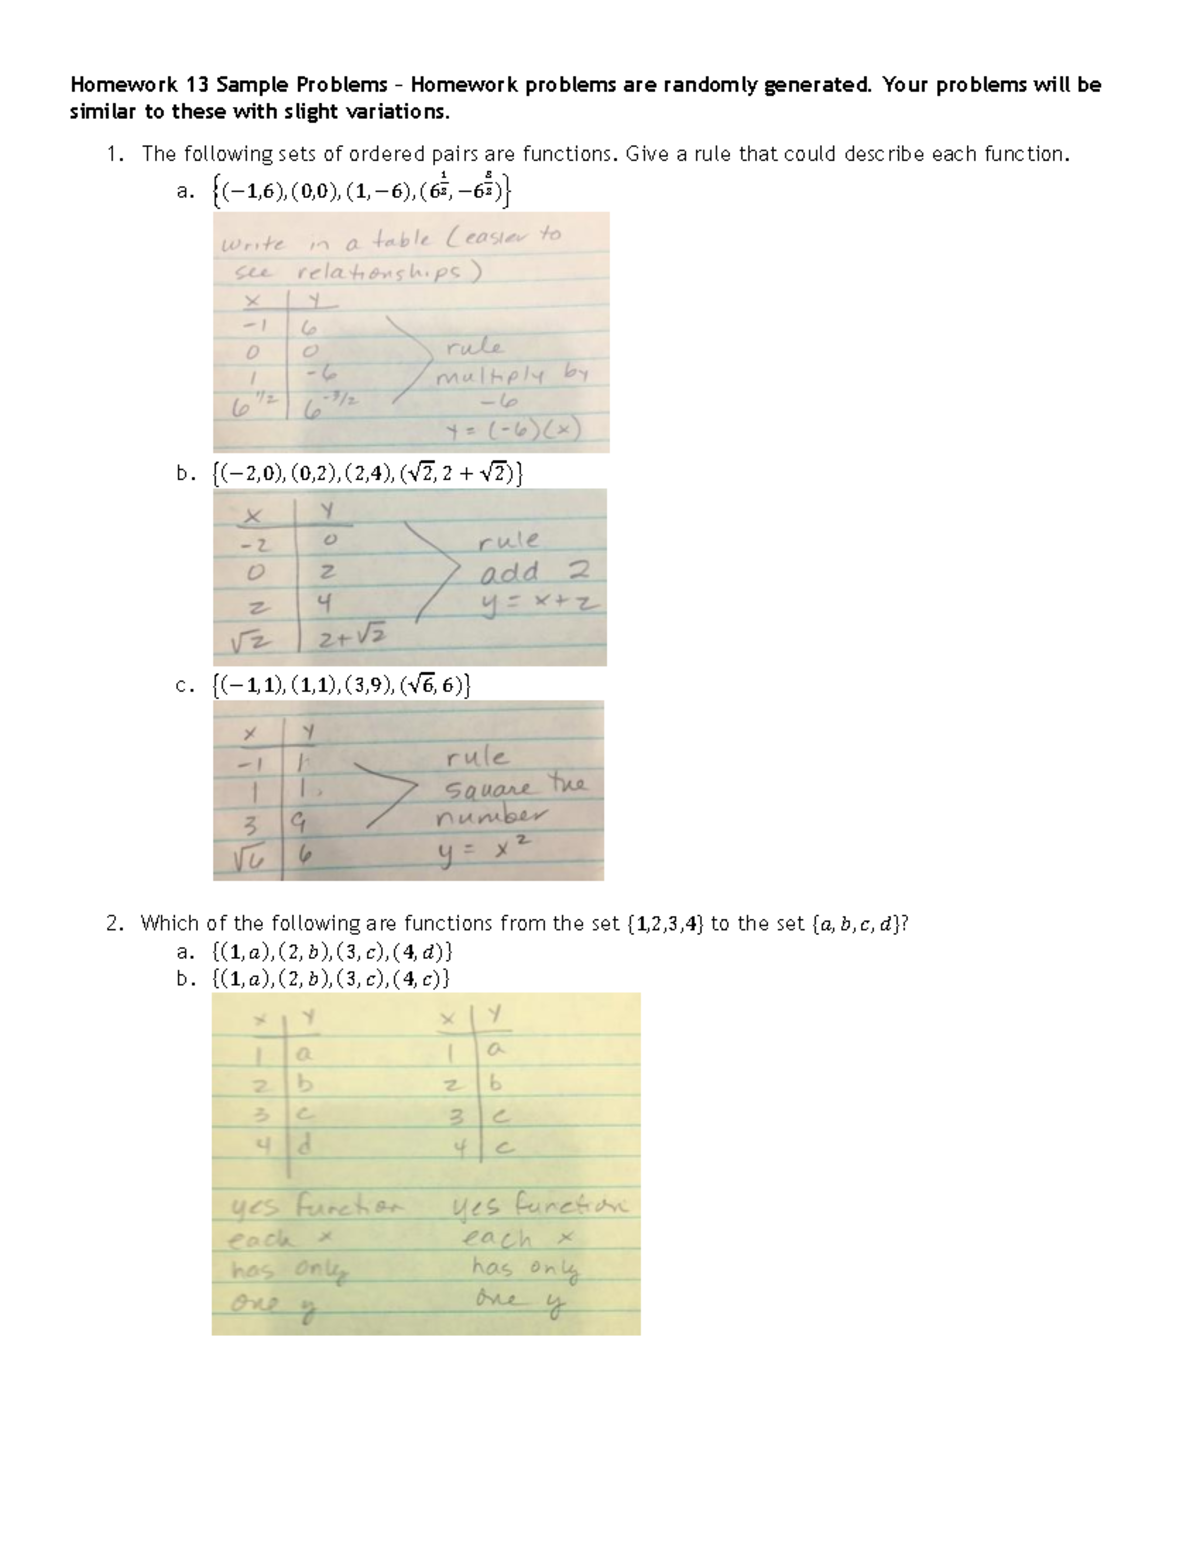 Homework 13 Sample Problems – Homework problems are randomly generated. Your problems will be
similar to these with slight variations.
1. The following sets of ordered pairs are functions. Give a rule that could describe each function.
a. {(−1,6), (0,0), (1,−6), (6^{1/2}, −6^{3/2})}
write in a table (easier to
see relationships)
x | y
-1 | 6
0 | 0
1 | -6
rule
multiply by
-6
6^{1/2} | 6^{-3/2}
y = (-6)(x)
b. {(−2,0), (0,2), (2,4), (√2, 2 + √2)}
x | y
-2 | 0
0 | 2
2 | 4
√2 | 2+√2
rule
add 2
y = x+2
c. {(−1,1), (1,1), (3,9), (√6, 6)}
x | y
-1 | 1
1 | 1
3 | 9
√6 | 6
rule
square the
number
y = x²
2. Which of the following are functions from the set {1,2,3,4} to the set {a, b, c, d}?
a. {(1, a), (2, b), (3, c), (4, d)}
b. {(1, a), (2, b), (3, c), (4, c)}
x | y
1 | a
2 | b
3 | c
4 | d
yes function
each x
has only
one y
x | y
1 | a
2 | b
3 | c
4 | c
yes function
each x
has only
one y